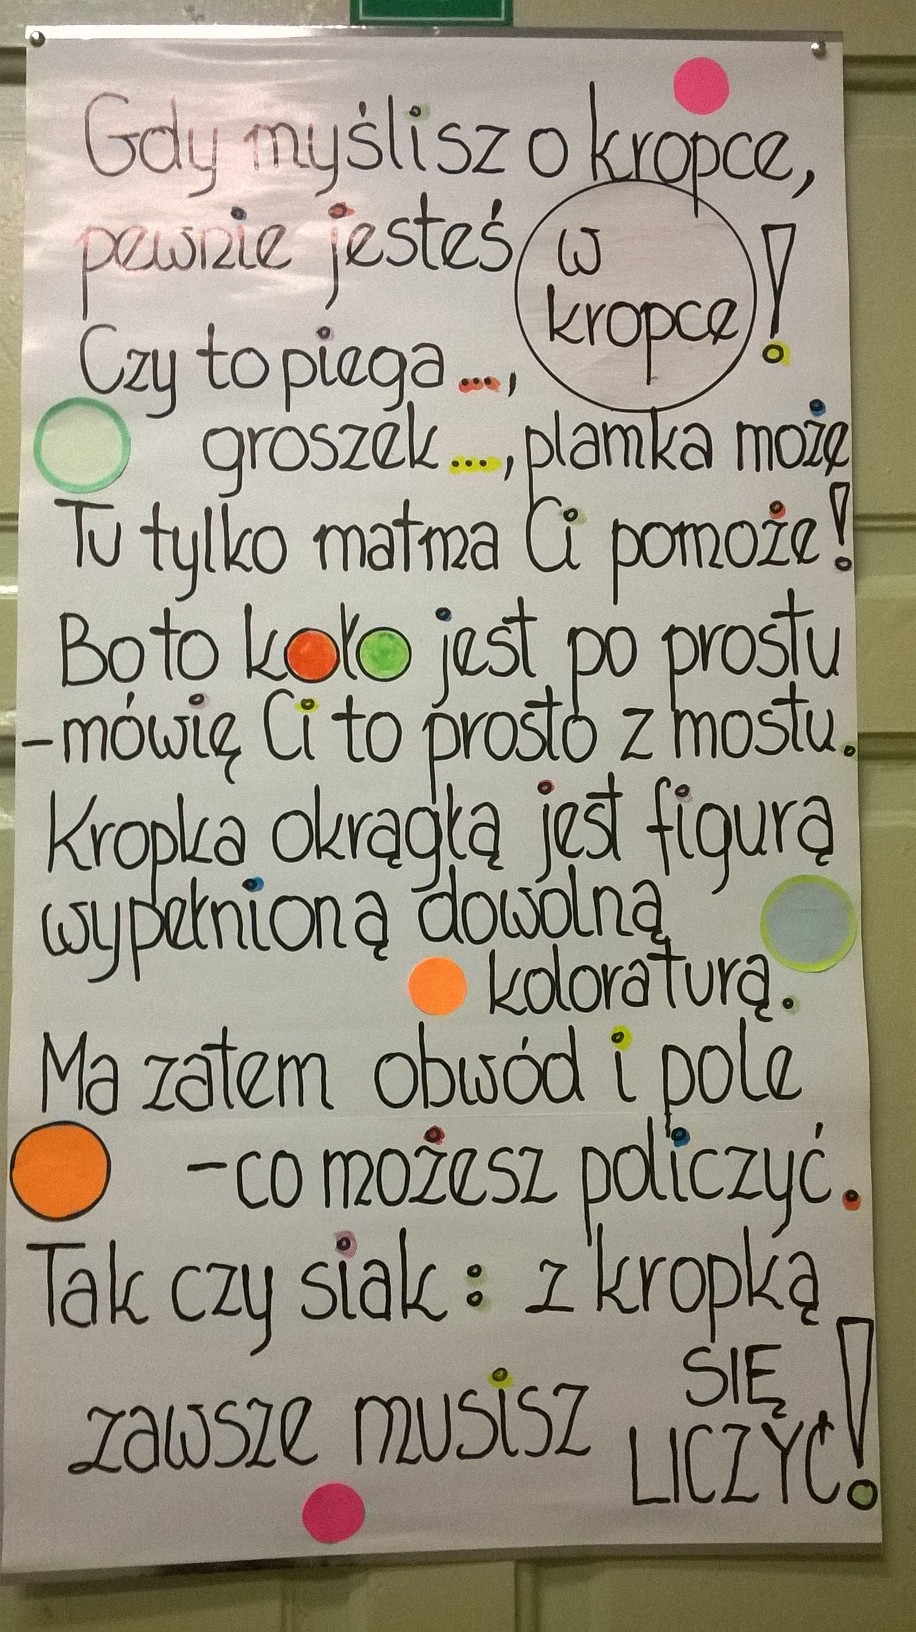 Gdy myślisz o kropce,
pewnie jesteś w kropce!
Czy to piega...,
groszek..., plamka może
Tu tylko matma Ci pomoże!
Bo to koło jest po prostu
-mówię Ci to prosto z mostu.
Kropka okrągłą jest figurą
wypełnioną dowolną
koloraturą.
Ma zatem obwód i pole
-co możesz policzyć.
Tak czy siak: z kropką
zawsze musisz SIĘ LICZYĆ!